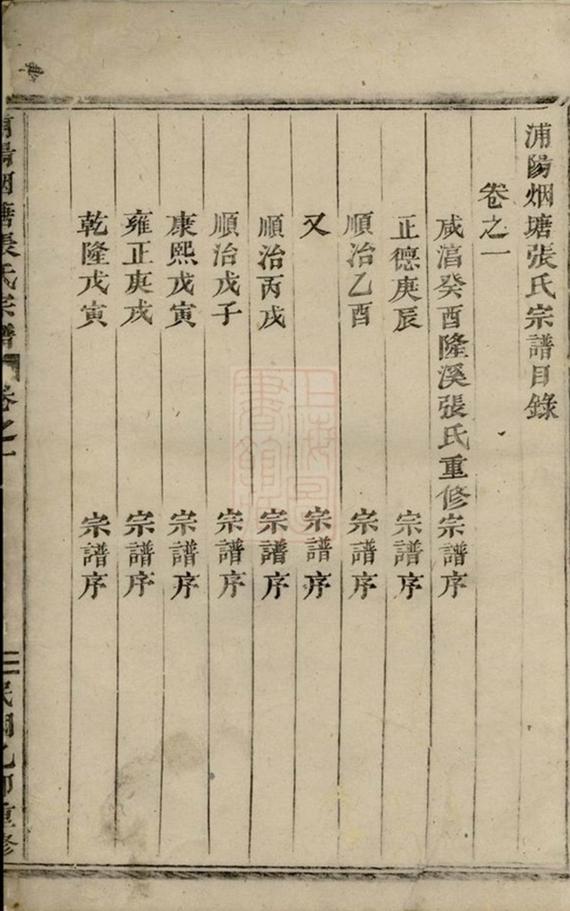 浦陽烟塘張氏宗譜目錄
卷之一
咸淳癸酉隆溪張氏重修宗譜序
正德庚辰 宗譜序
順治乙酉 宗譜序
又 宗譜序
順治丙戌 宗譜序
順治戊子 宗譜序
康熙戊寅 宗譜序
雍正庚戌 宗譜序
乾隆戊寅 宗譜序
浦陽烟塘張氏宗譜 卷之一 民國乙卯重修